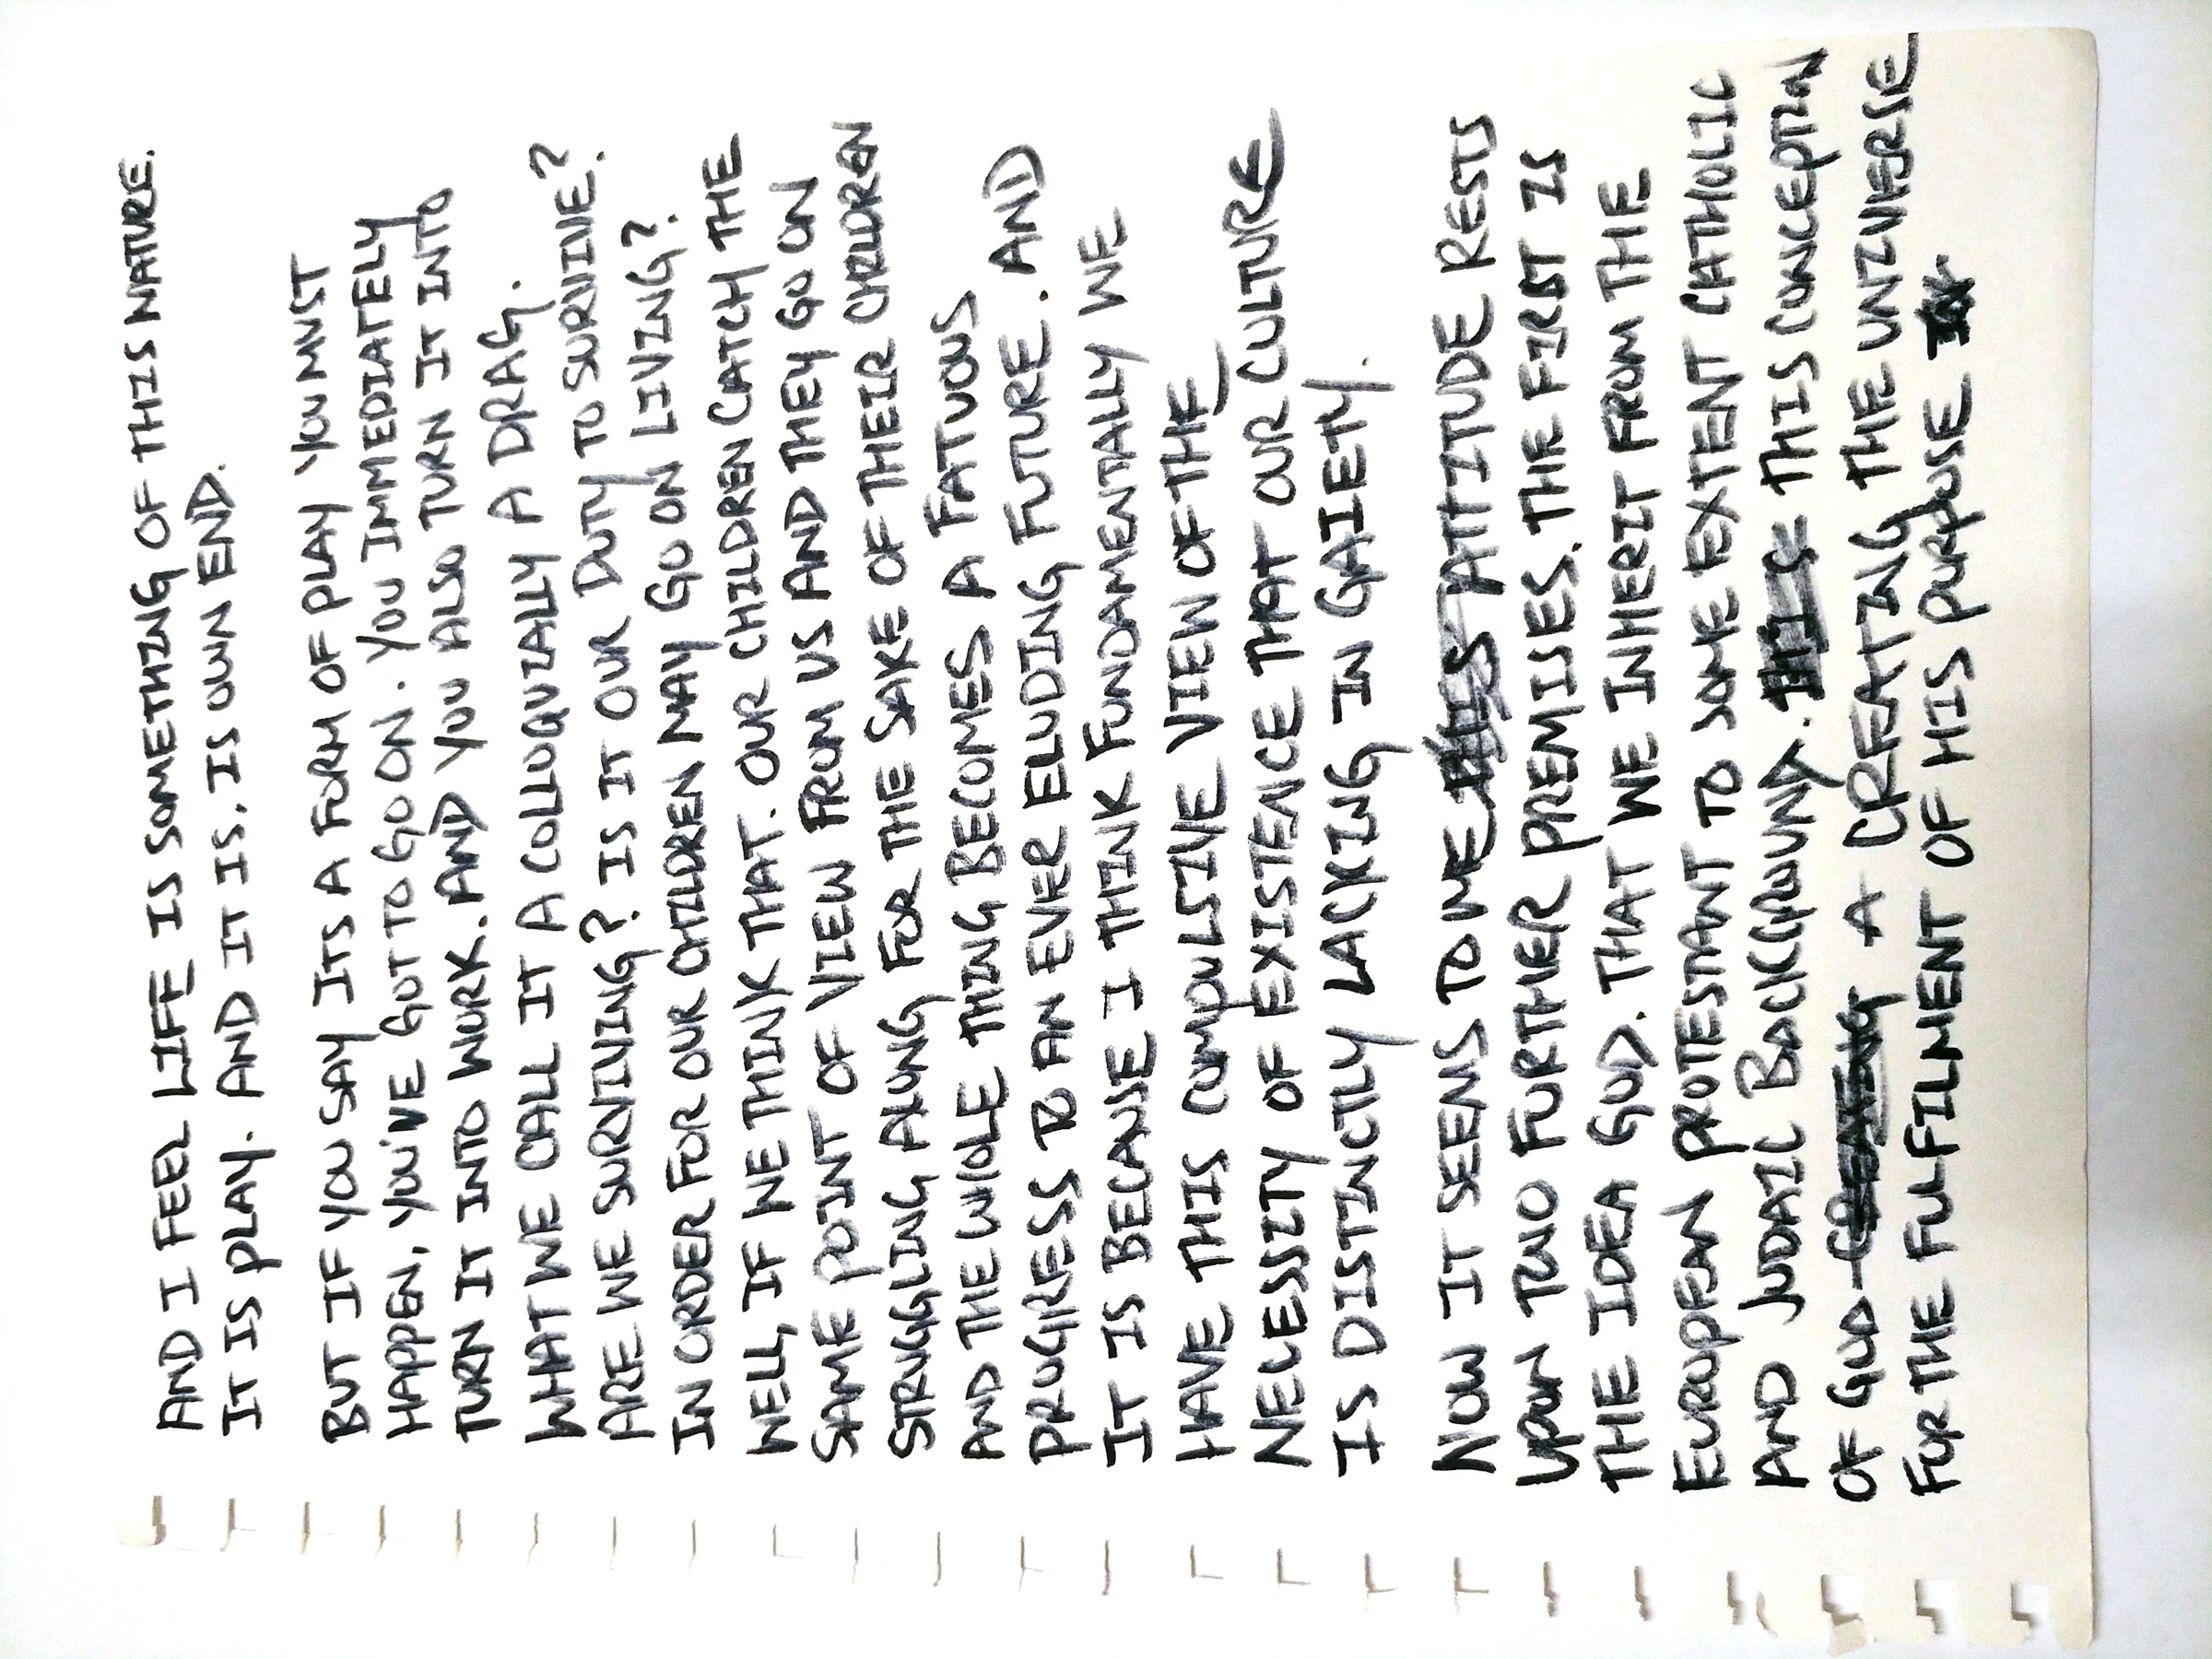 AND I FEEL LIFE IS SOMETHING OF THIS NATURE.
IT IS PLAY. AND IT IS. IS OWN END.
BUT IF YOU SAY ITS A FORM OF PLAY YOU MUST
HAPPEN, YOU'VE GOT TO GO ON. YOU IMMEDIATELY
TURN IT INTO WORK. AND YOU ALSO TURN IT INTO
WHAT WE CALL IT A COLLOQUIALLY A DRAG.
ARE WE SURVIVING? IS IT OUR DUTY TO SURVIVE?
IN ORDER FOR OUR CHILDREN MAY GO ON LIVING?
WELL, IF WE THINK THAT. OUR CHILDREN CATCH THE
SAME POINT OF VIEW FROM US AND THEY GO ON
STRUGGLING ALONG FOR THE SAKE OF THEIR CHILDREN
AND THE WHOLE THING BECOMES A FATUOUS
PROGRESS TO AN EVER ELUDING FUTURE. AND
IT IS BECAUSE I THINK FUNDAMENTALLY WE
HAVE THIS COMPULSIVE VIEW OF THE
NECESSITY OF EXISTENCE THAT OUR CULTURE
IS DISTINCTLY LACKING IN GAIETY.
NOW IT SEEMS TO ME THIS ATTITUDE RESTS
UPON TWO FURTHER PREMISES. THE FIRST IS
THE IDEA GOD. THAT WE INHERIT FROM THE
EUROPEAN PROTESTANT TO SOME EXTENT CATHOLIC
AND JUDAIC BACKGROUND. THIS CONCEPTION
OF GOD CREATING A CREATING THE UNIVERSE
FOR THE FULFILMENT OF HIS PURPOSE